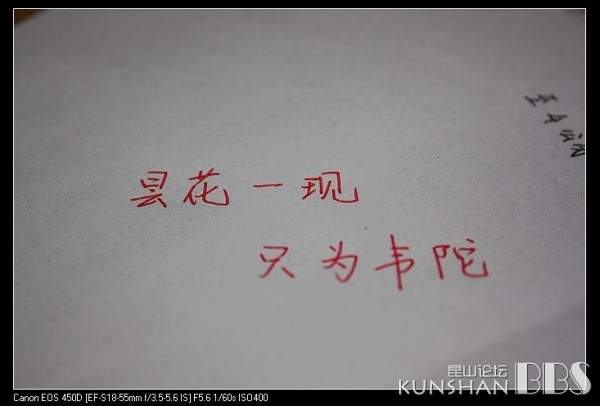 昙花一现
只为韦陀
昆山论坛
KUNSHAN BBS
Canon EOS 450D [EF-S18-55mm f/3.5-5.6 IS] F5.6 1/60s ISO400